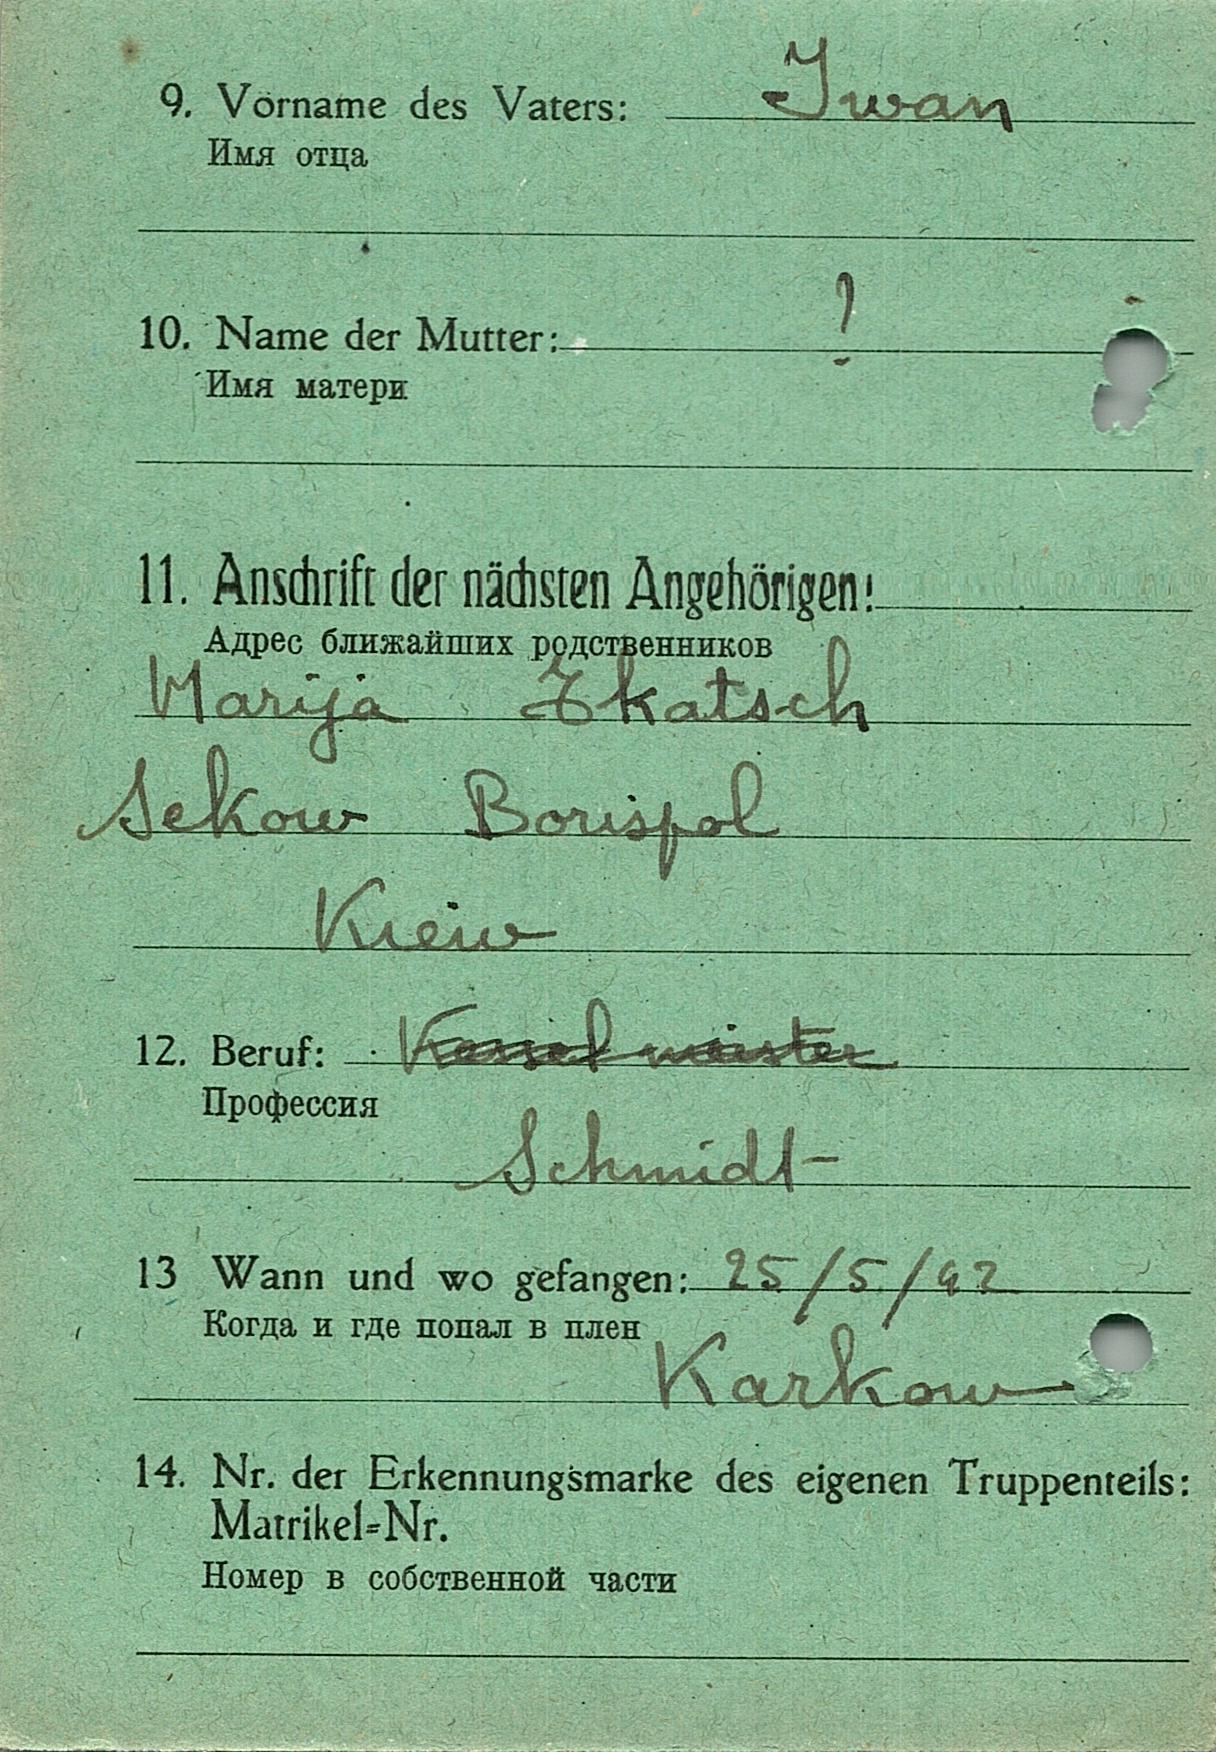 9. Vorname des Vaters: Iwan
Имя отца
10. Name der Mutter: ?
Имя матери
11. Anschrift der nächsten Angehörigen:
Адрес ближайших родственников
Marija Tkatsch
Sekow Borispol
Kieiw
12. Beruf: Kesselmeister
Профессия
Schmidt
13 Wann und wo gefangen: 25/5/42
Когда и где попал в плен
Karkow
14. Nr. der Erkennungsmarke des eigenen Truppenteils:
Matrikel=Nr.
Номер в собственной части